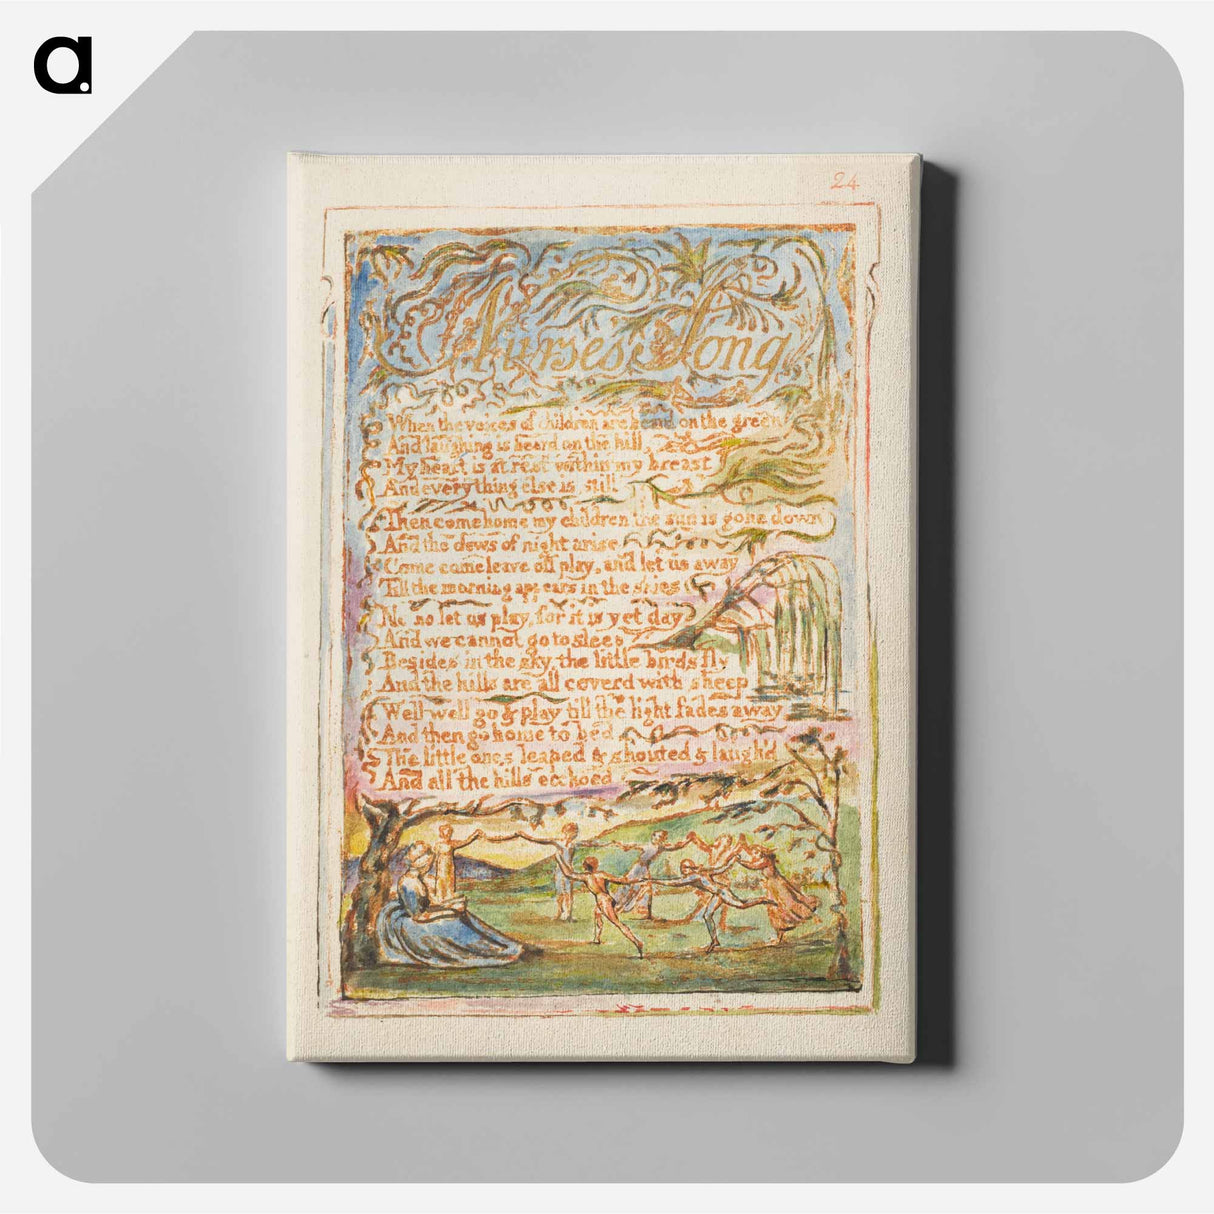 a.
24
Nurse's Song
When the voices of children are heard on the green
And laughing is heard on the hill
My heart is at rest within my breast
And every thing else is still
Then come home my children the sun is gone down
And the dews of night arise
Come come leave off play, and let us away
Till the morning appears in the skies
No no let us play, for it is yet day
And we cannot go to sleep
Besides in the sky, the little birds fly
And the hills are all coverd with sheep
Well well go & play till the light fades away
And then go home to bed
The little ones leaped & shouted & laugh'd
And all the hills ecchoed